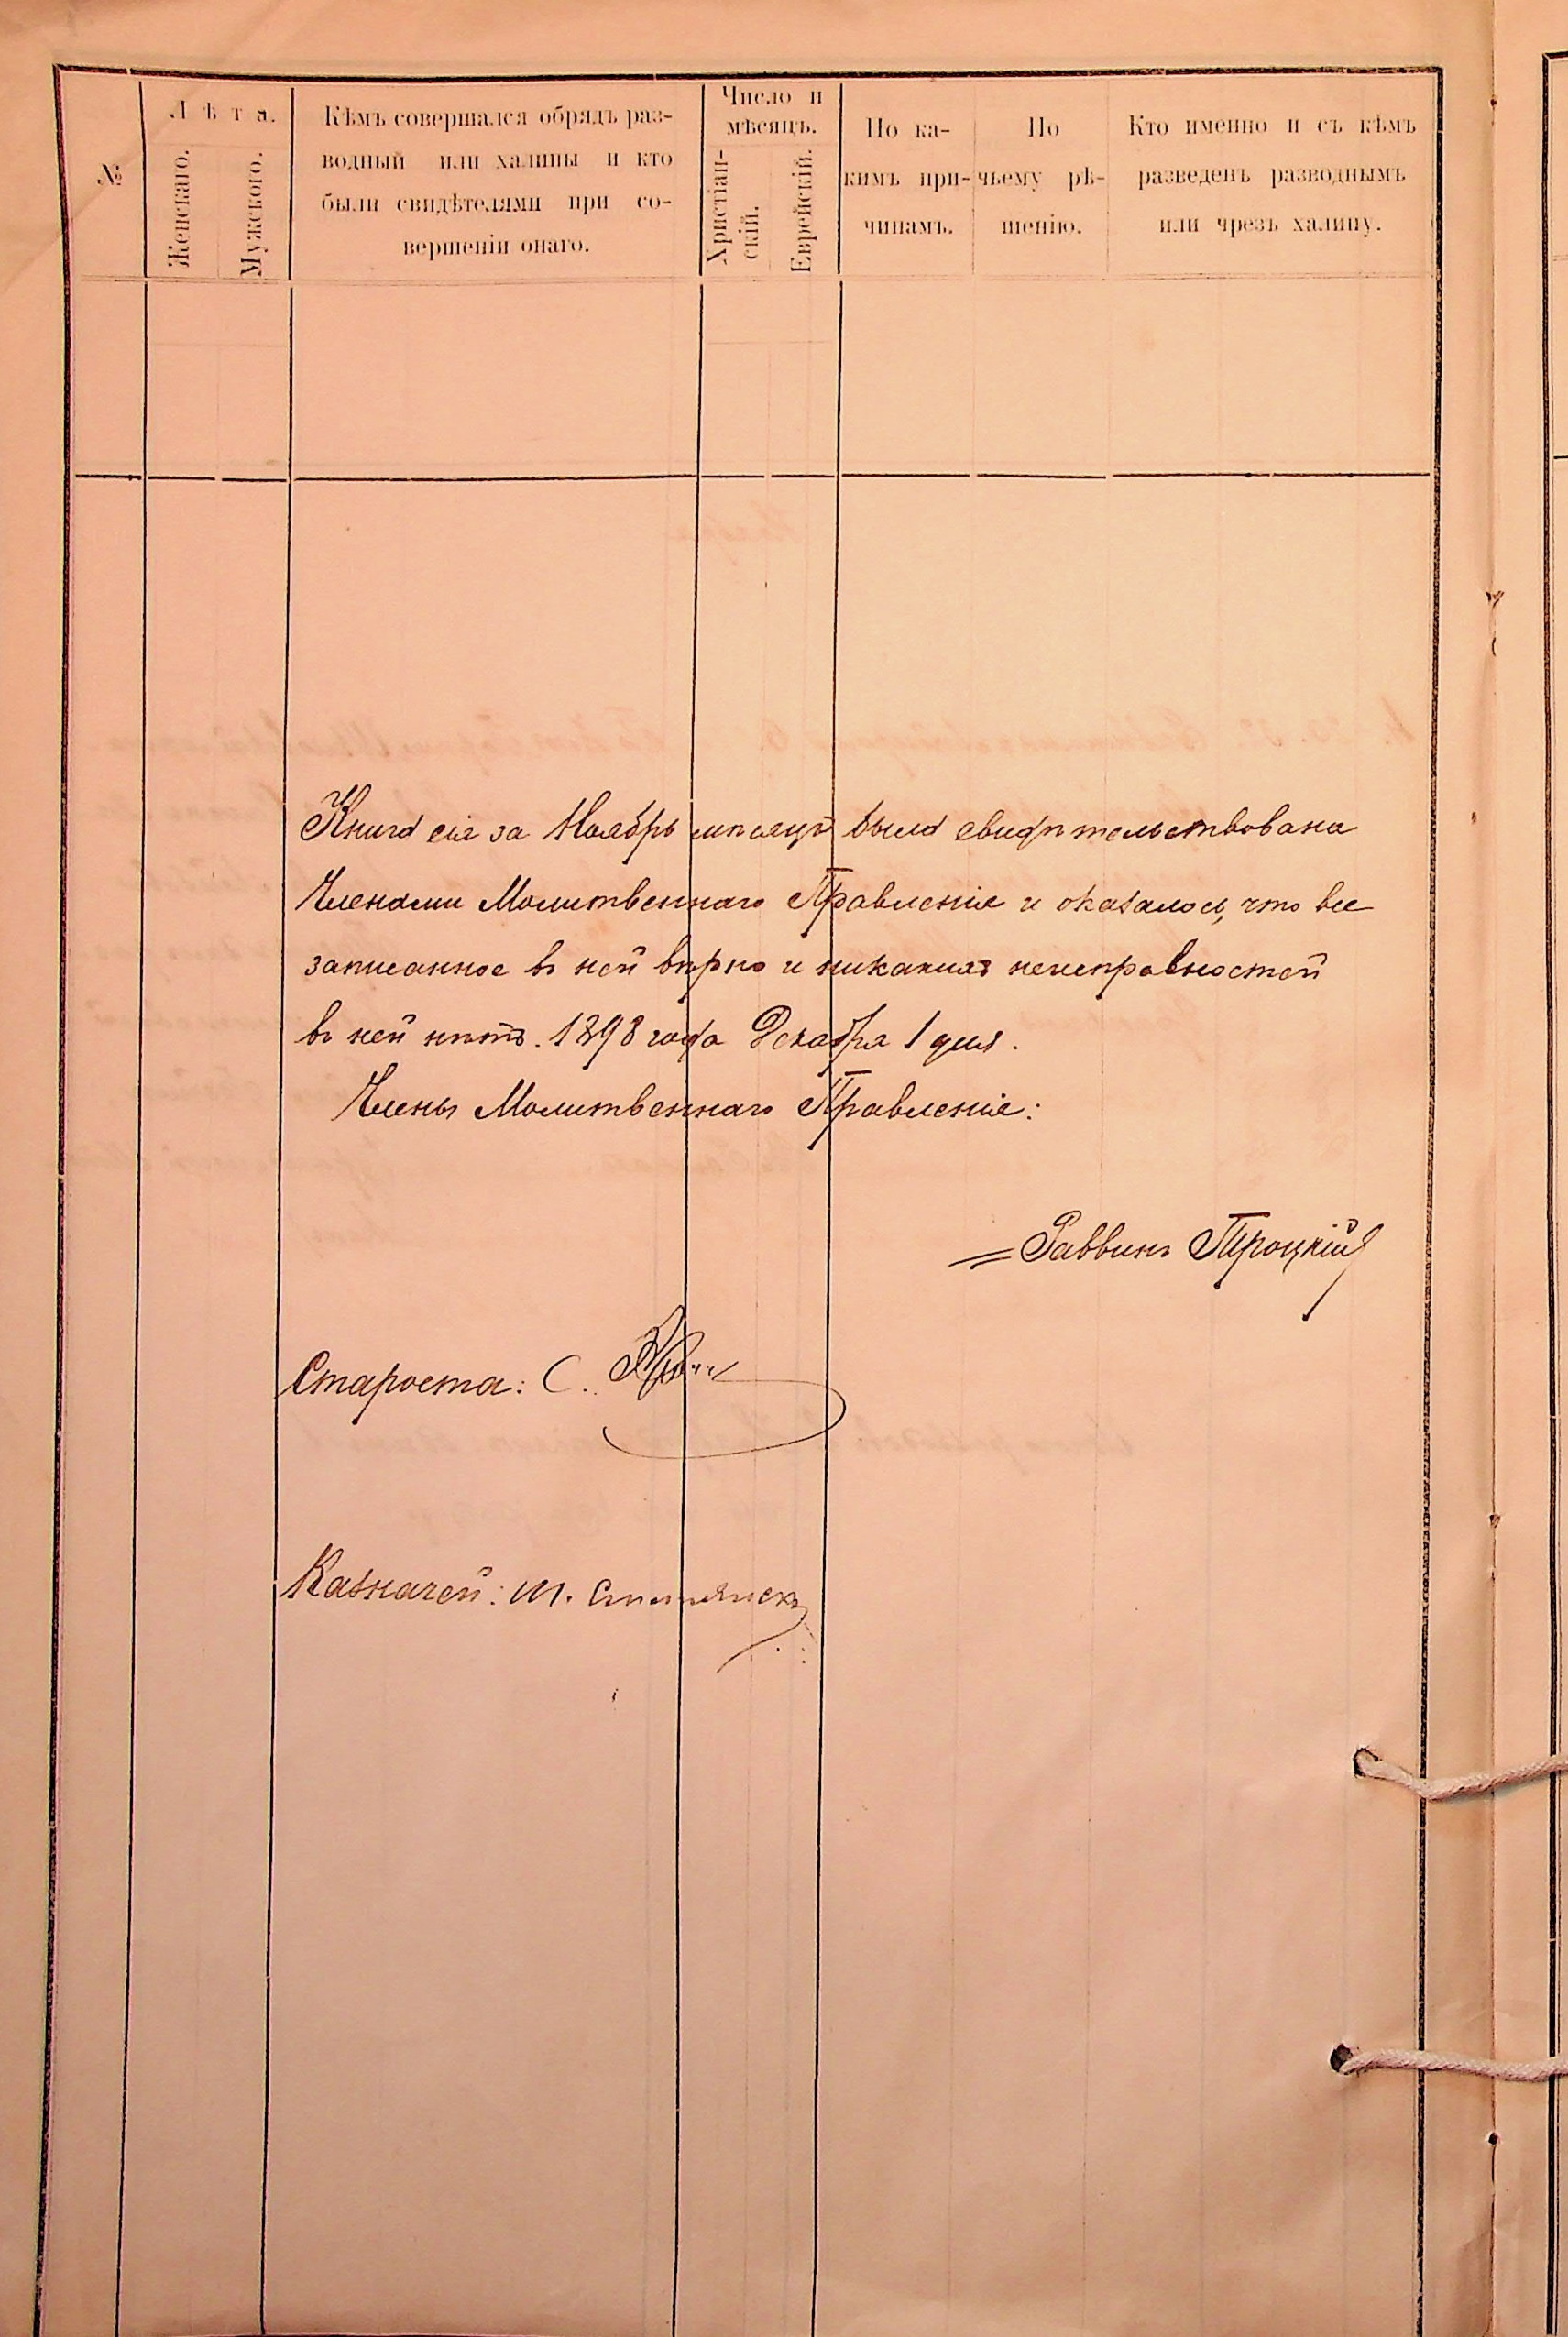 №
Лѣта.
Женскаго.
Мужского.
Кѣмъ совершался обрядъ раз-
водный или халицы и кто
были свидѣтелями при со-
вершеніи онаго.
Число и
мѣсяцъ.
Христіан-
скій.
Еврейскій.
По ка-
кимъ при-
чинамъ.
По
чьему рѣ-
шенію.
Кто именно и съ кѣмъ
разведенъ разводнымъ
или чрезъ халицу.
Книга сія за Ноябрь мѣсяцъ была свидѣтельствована
Членами Молитвеннаго Правленія и оказалось, что все
записанное въ ней вѣрно и никакихъ неисправностей
въ ней нѣтъ. 1898 года Декабря 1 дня.
Члены Молитвеннаго Правленія:
Раввинъ Троцкій
Староста: С.
Казначей: Ш.